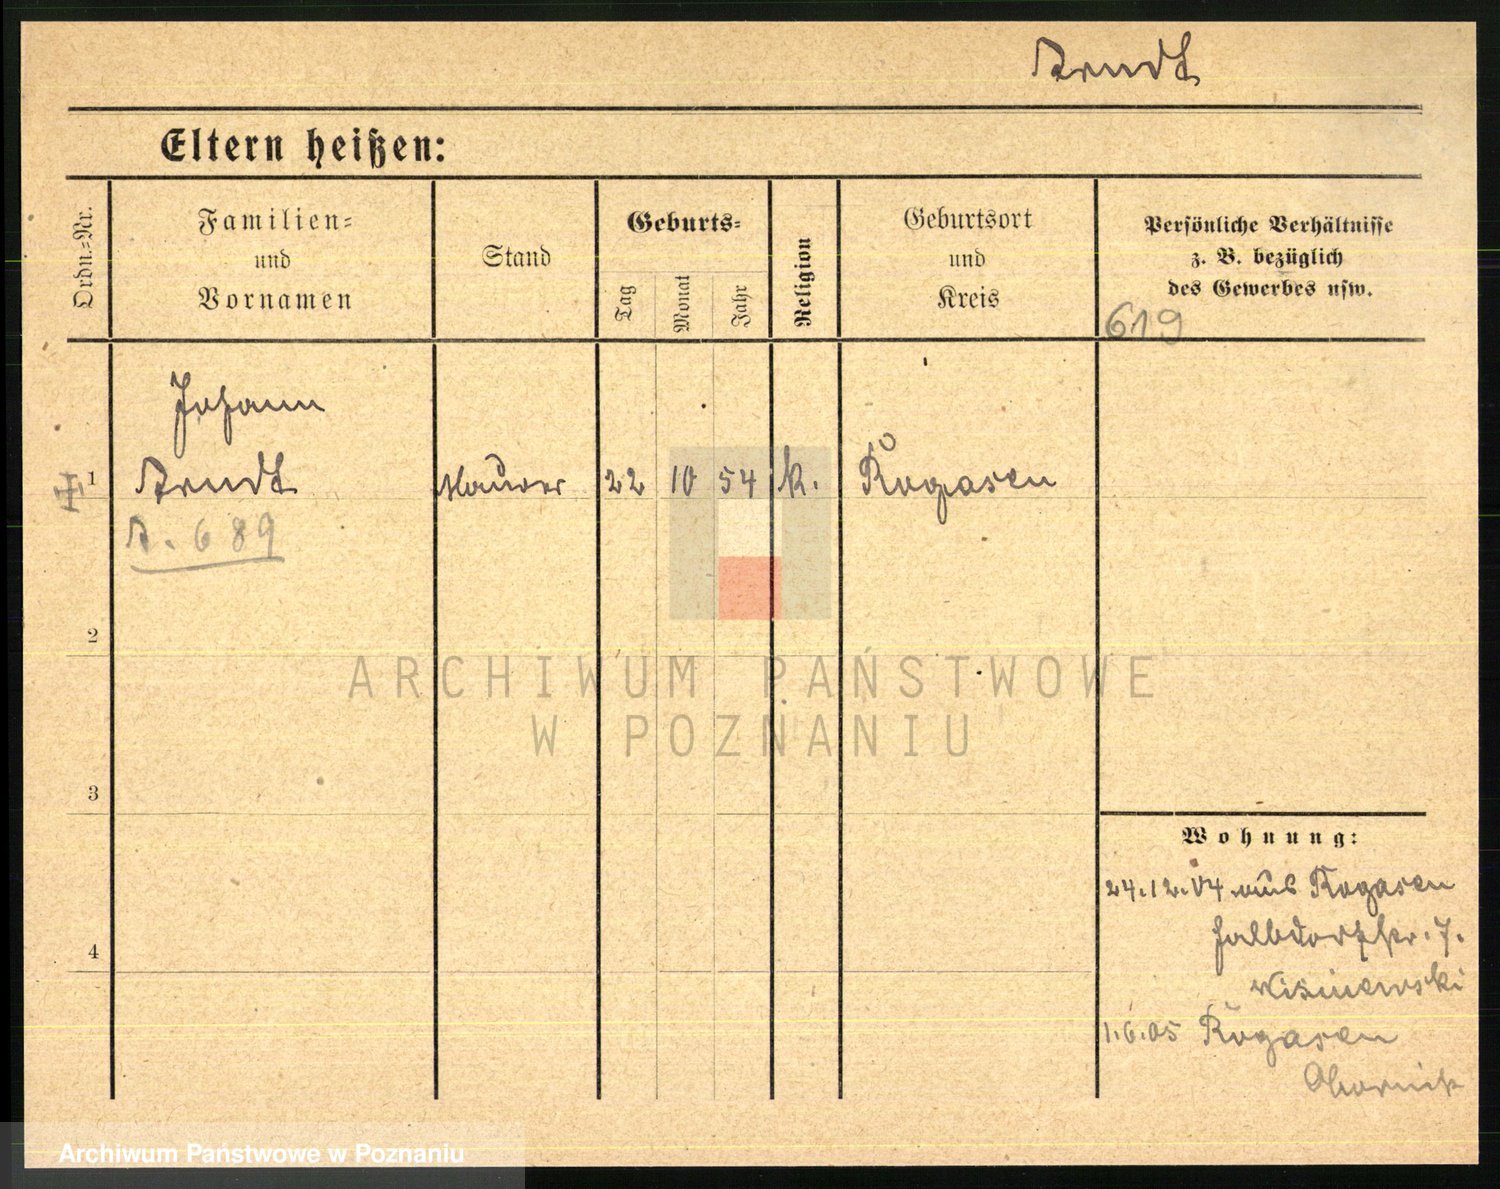 Arndt
Eltern heißen:
Ordn.-Nr.
Familien-
und
Vornamen
Stand
Geburts-
Tag
Monat
Jahr
Religion
Geburtsort
und
Kreis
Persönliche Verhältnisse
z. B. bezüglich
des Gewerbes usw.
619
Johann
1 Arndt Maurer 22 10 54 k. Rogasen
A. 689
2
ARCHIWUM PAŃSTWOWE
W POZNANIU
3
Wohnung:
24.12.04 aus Rogasen
Halbdorfstr. 7.
Wisniewski
4
1.6.05 Rogasen
Obornik
Archiwum Państwowe w Poznaniu